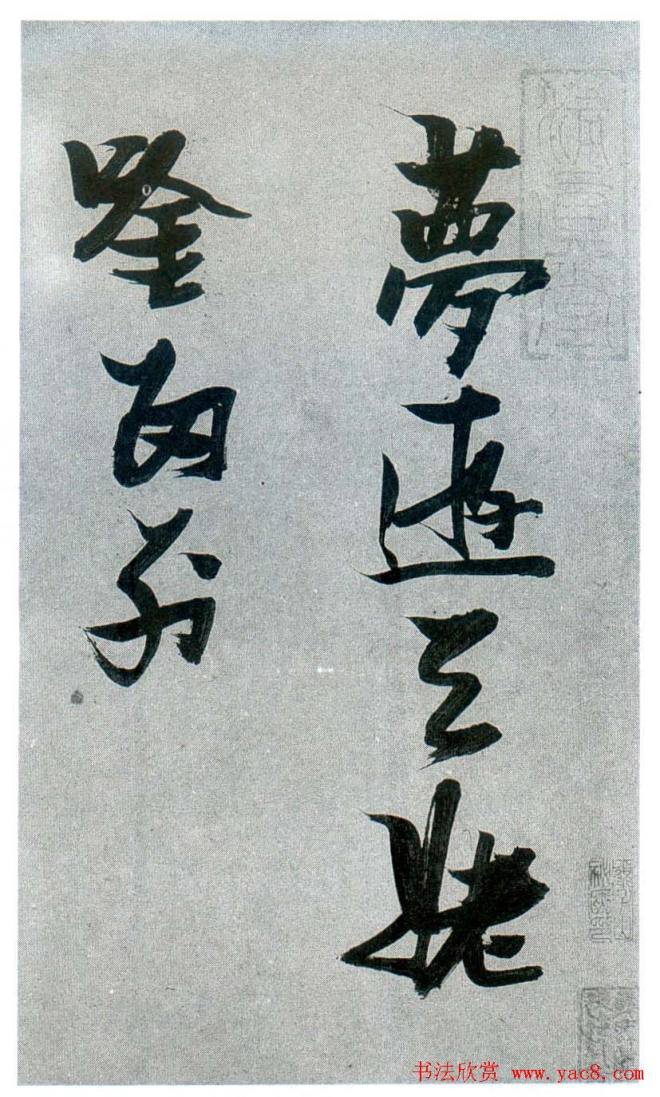 夢遊天姥
唫留別
书法欣赏 www.yac8.com